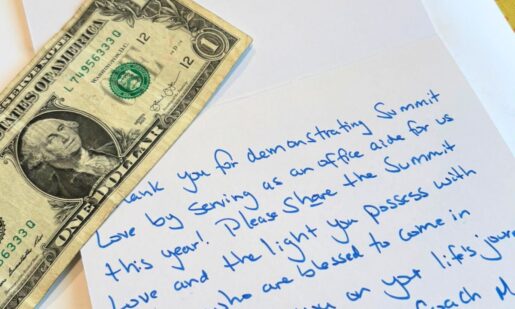 STATES OF AMERICA
L 74956333 Q
WASHINGTON, D.C.
12
1
12
ONE DOLLAR
56333 Q
hank you for demonstrating Summit
Love by serving as an office aide for us
this year! Please share the Summit
Love and the light you possess with
who are blessed to come in
on your life's jour
Coach M